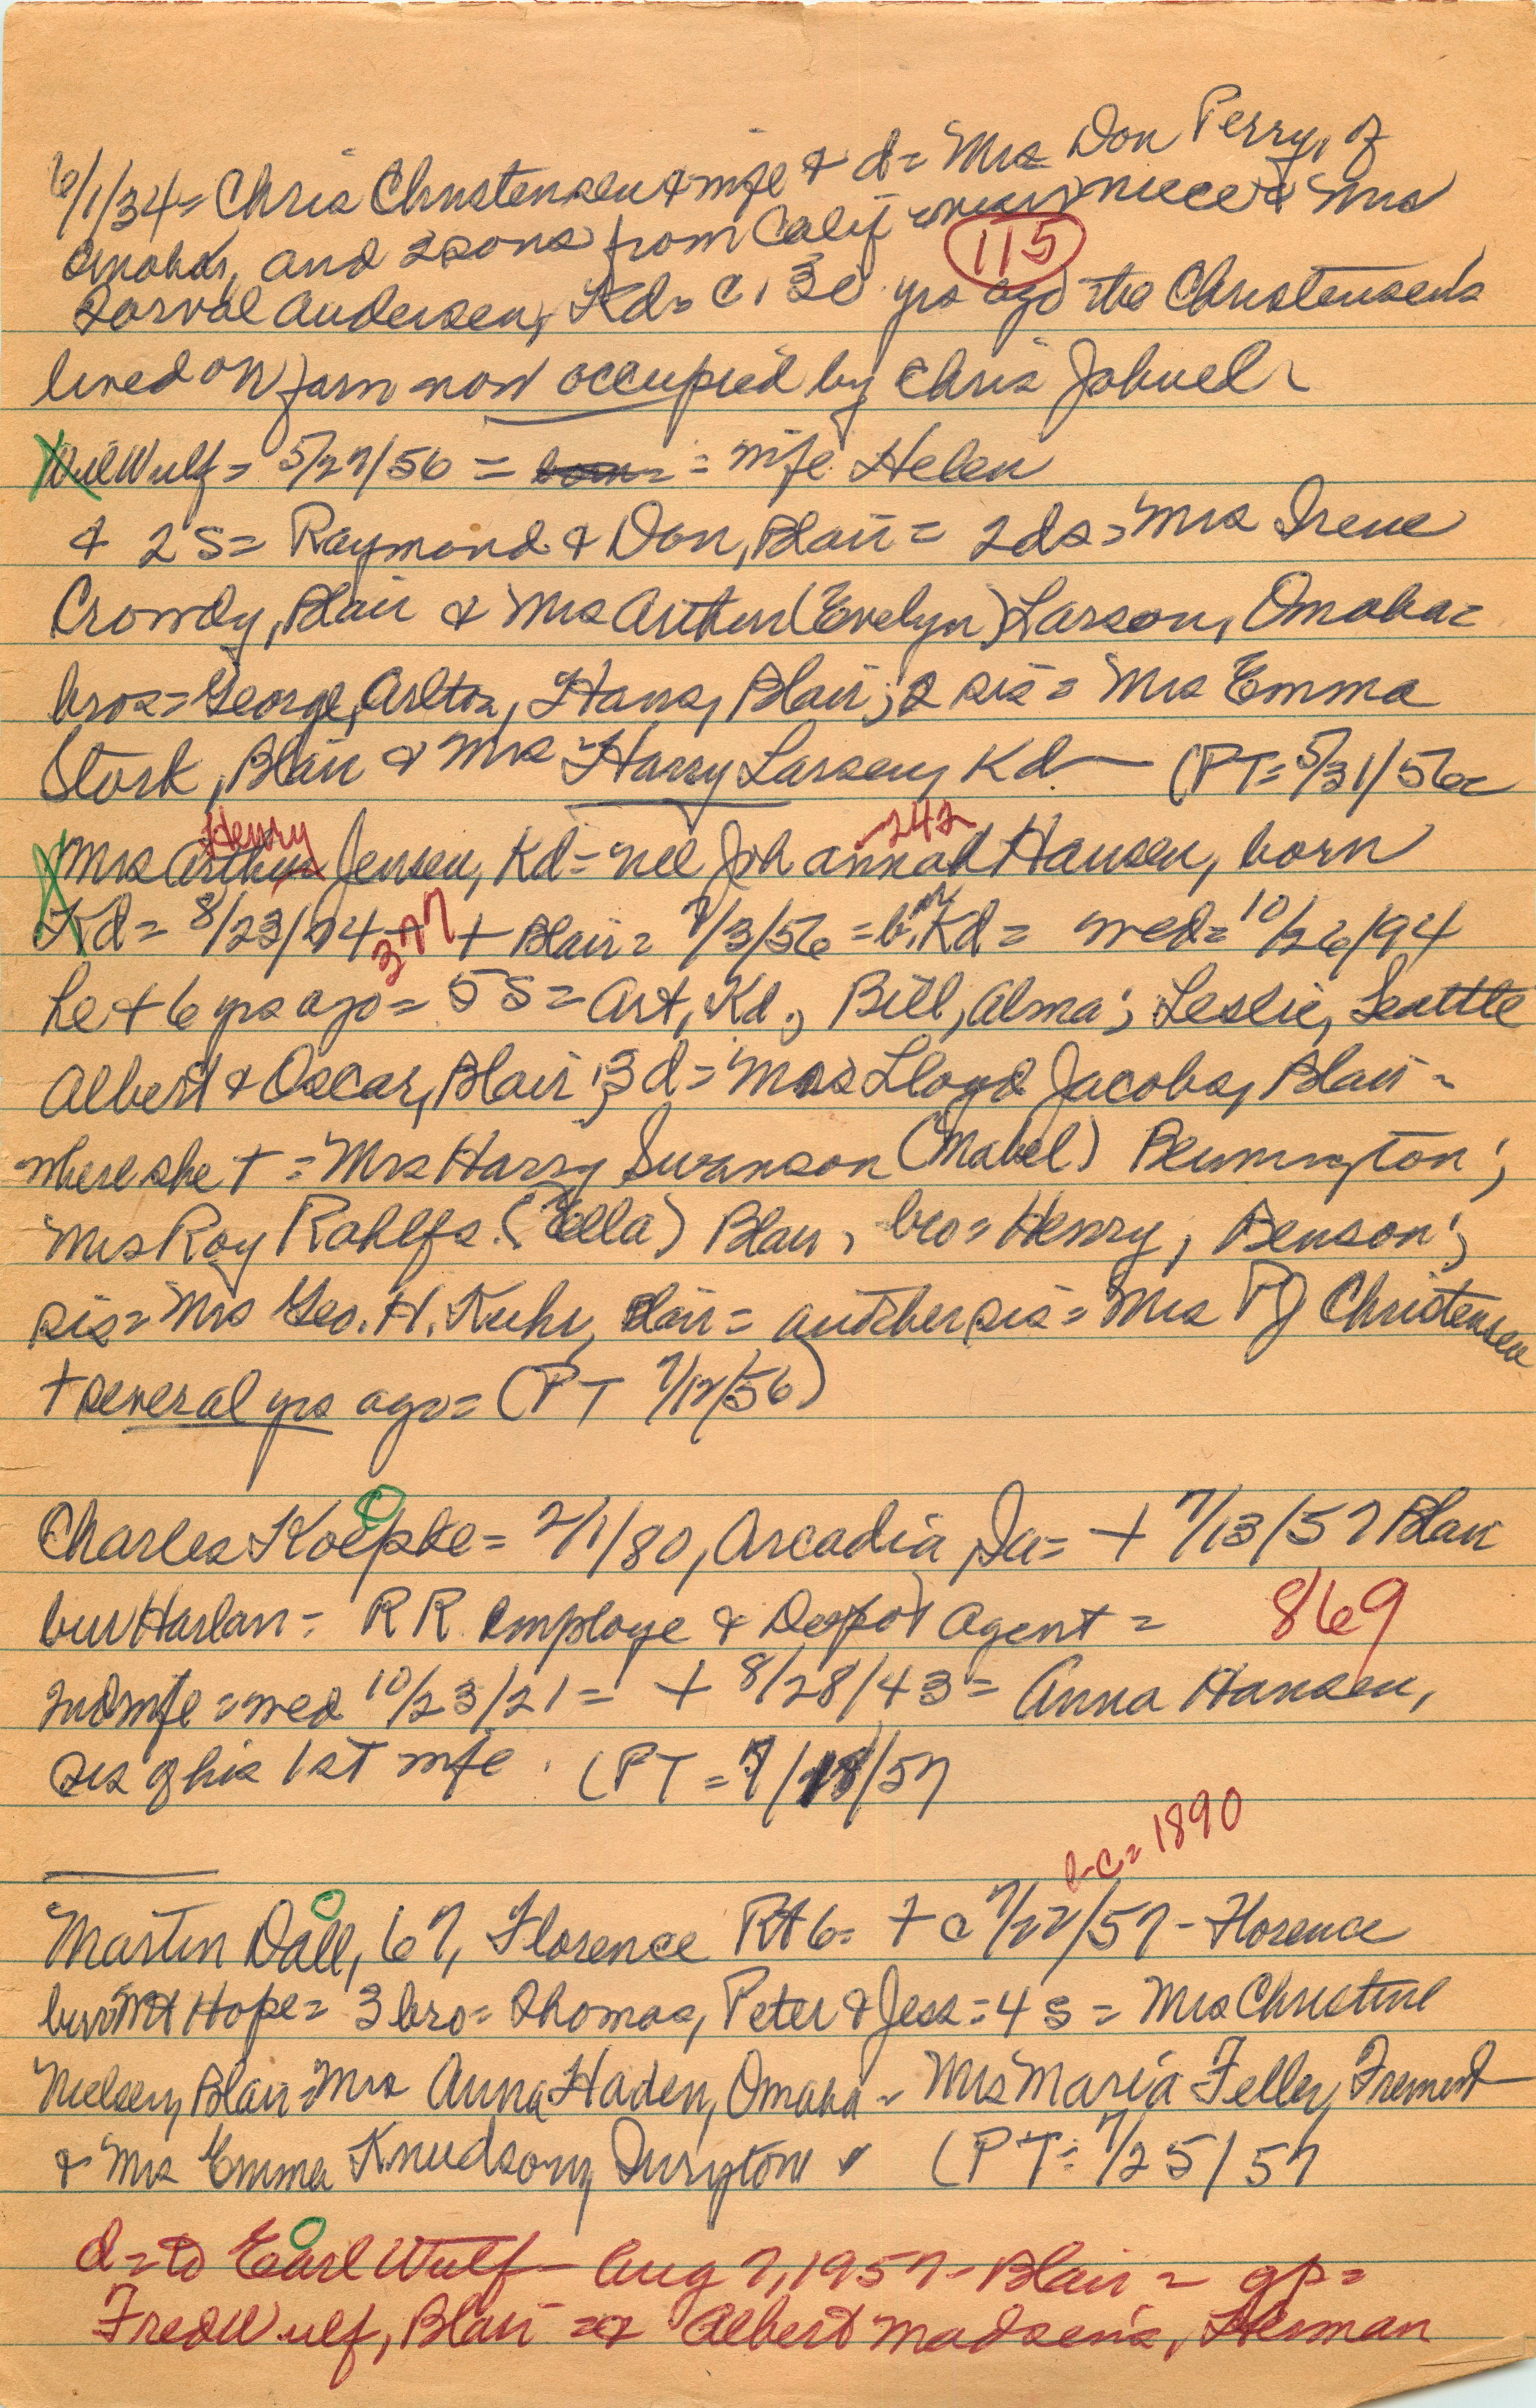 6/1/34 = Chris Christensen & wife & d = Mrs Don Perry, of
Omaha, and 2 sons from Calif niece & Mrs
115
Andersen, Kd = c. 30 yrs ago the Christensens
lived on farm now occupied by Chris
Will Wulf = 5/27/56 = = wife Helen
& 2 S = Raymond & Don, Blair = 2 ds = Mrs Irene
Crowdy, Blair & Mrs Arthur (Evelyn) Larson, Omaha =
bros = George, Hans, Blair; 2 sis = Mrs Emma
Stork, Blair & Mrs Harry Larsen, Kd — (PT = 5/31/56
Henry -242-
Mrs Arthur Jensen, Kd = nee Johannah Hansen, born
Kd = 8/23/74 + Blair = 7/3/56 = b. Kd = wed = 10/26/94
377
he + 6 yrs ago = 5 S = Art, Kd., Bill, Alma; Leslie, Seattle
Albert & Oscar, Blair; 3 d = Mrs Lloyd Jacobs, Blair =
where she + = Mrs Harry Swanson (Mabel) Bennington;
Mrs Roy Rahlfs (Ella) Blair, bro = Henry, Benson;
sis = Mrs Geo. H. Kuhr, Blair = another sis = Mrs PJ Christensen
+ several yrs ago = (PT 7/12/56)
Charles Koepke = 2/1/80, Arcadia, Ia = + 7/13/57 Blair
bur Harlan = RR employe & Depot Agent = 869
2nd wife = wed 10/23/21 = + 8/28/43 = Anna Hansen,
sis of his 1st wife. (PT = 7/18/57
b c = 1890
Martin Dall, 67, Florence Rt 6 = + c 7/22/57 - Florence
bur Mt Hope = 3 bro = Thomas, Peter & Jess = 4 s = Mrs Christine
Nielsen, Blair = Mrs Anna Haden, Omaha = Mrs Maria Feller, Fremont
& Mrs Emma Knudson, (PT = 7/25/57
d = to Earl Wulf — Aug 7, 1957 - Blair = gp =
Fred Wulf, Blair = & Albert Madsens, Herman